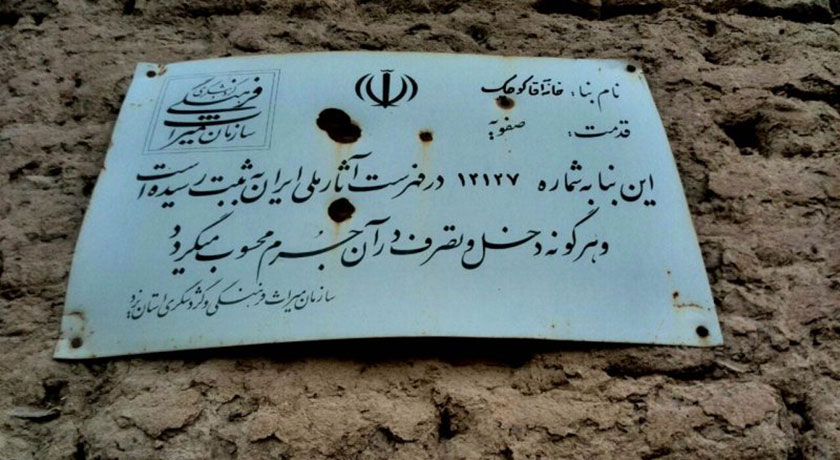 نام بنا: خانه آقا کوچک
قدمت: صفویه
سازمان میراث فرهنگی و گردشگری
این بنا به شماره ۱۲۱۲۷ در فهرست آثار ملی ایران به ثبت رسیده است
و هرگونه دخل و تصرف در آن جرم محسوب میگردد
سازمان میراث فرهنگی و گردشگری استان یزد